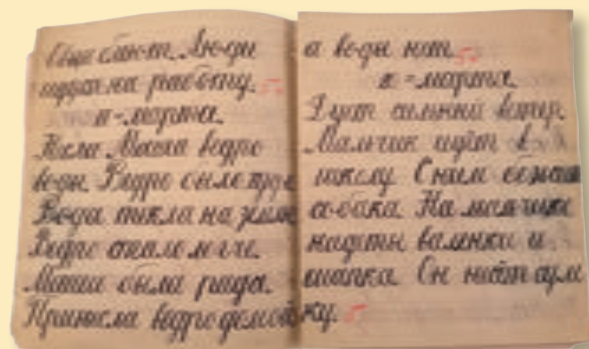 Люди
идут на работу. 5
11 = марта.
Несла Маша ведро
воды. Ведро было худо
Вода текла на землю
Ведро стало легче.
Маша была рада.
Принесла ведро домой
а воды нет. 5
= марта.
Дует сильный ветер
Мальчик идёт в
школу С ним бежит
собака На мальчике
надеты валенки и
шапка Он несёт сум
ку. 5